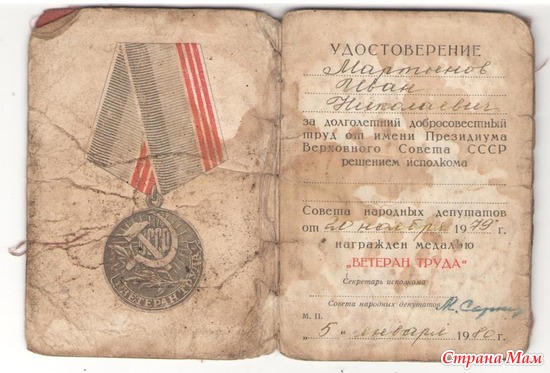 СССР
ВЕТЕРАН ТРУДА
УДОСТОВЕРЕНИЕ
Мартынов
Иван
Николаевич
за долголетний добросовестный
труд от имени Президиума
Верховного Совета СССР
решением исполкома
Совета народных депутатов
от ноября 1979 г.
награжден медалью
"ВЕТЕРАН ТРУДА"
Секретарь исполкома
Совета народных депутатов
М. П.
"5" января 1980 г.
Страна Мам